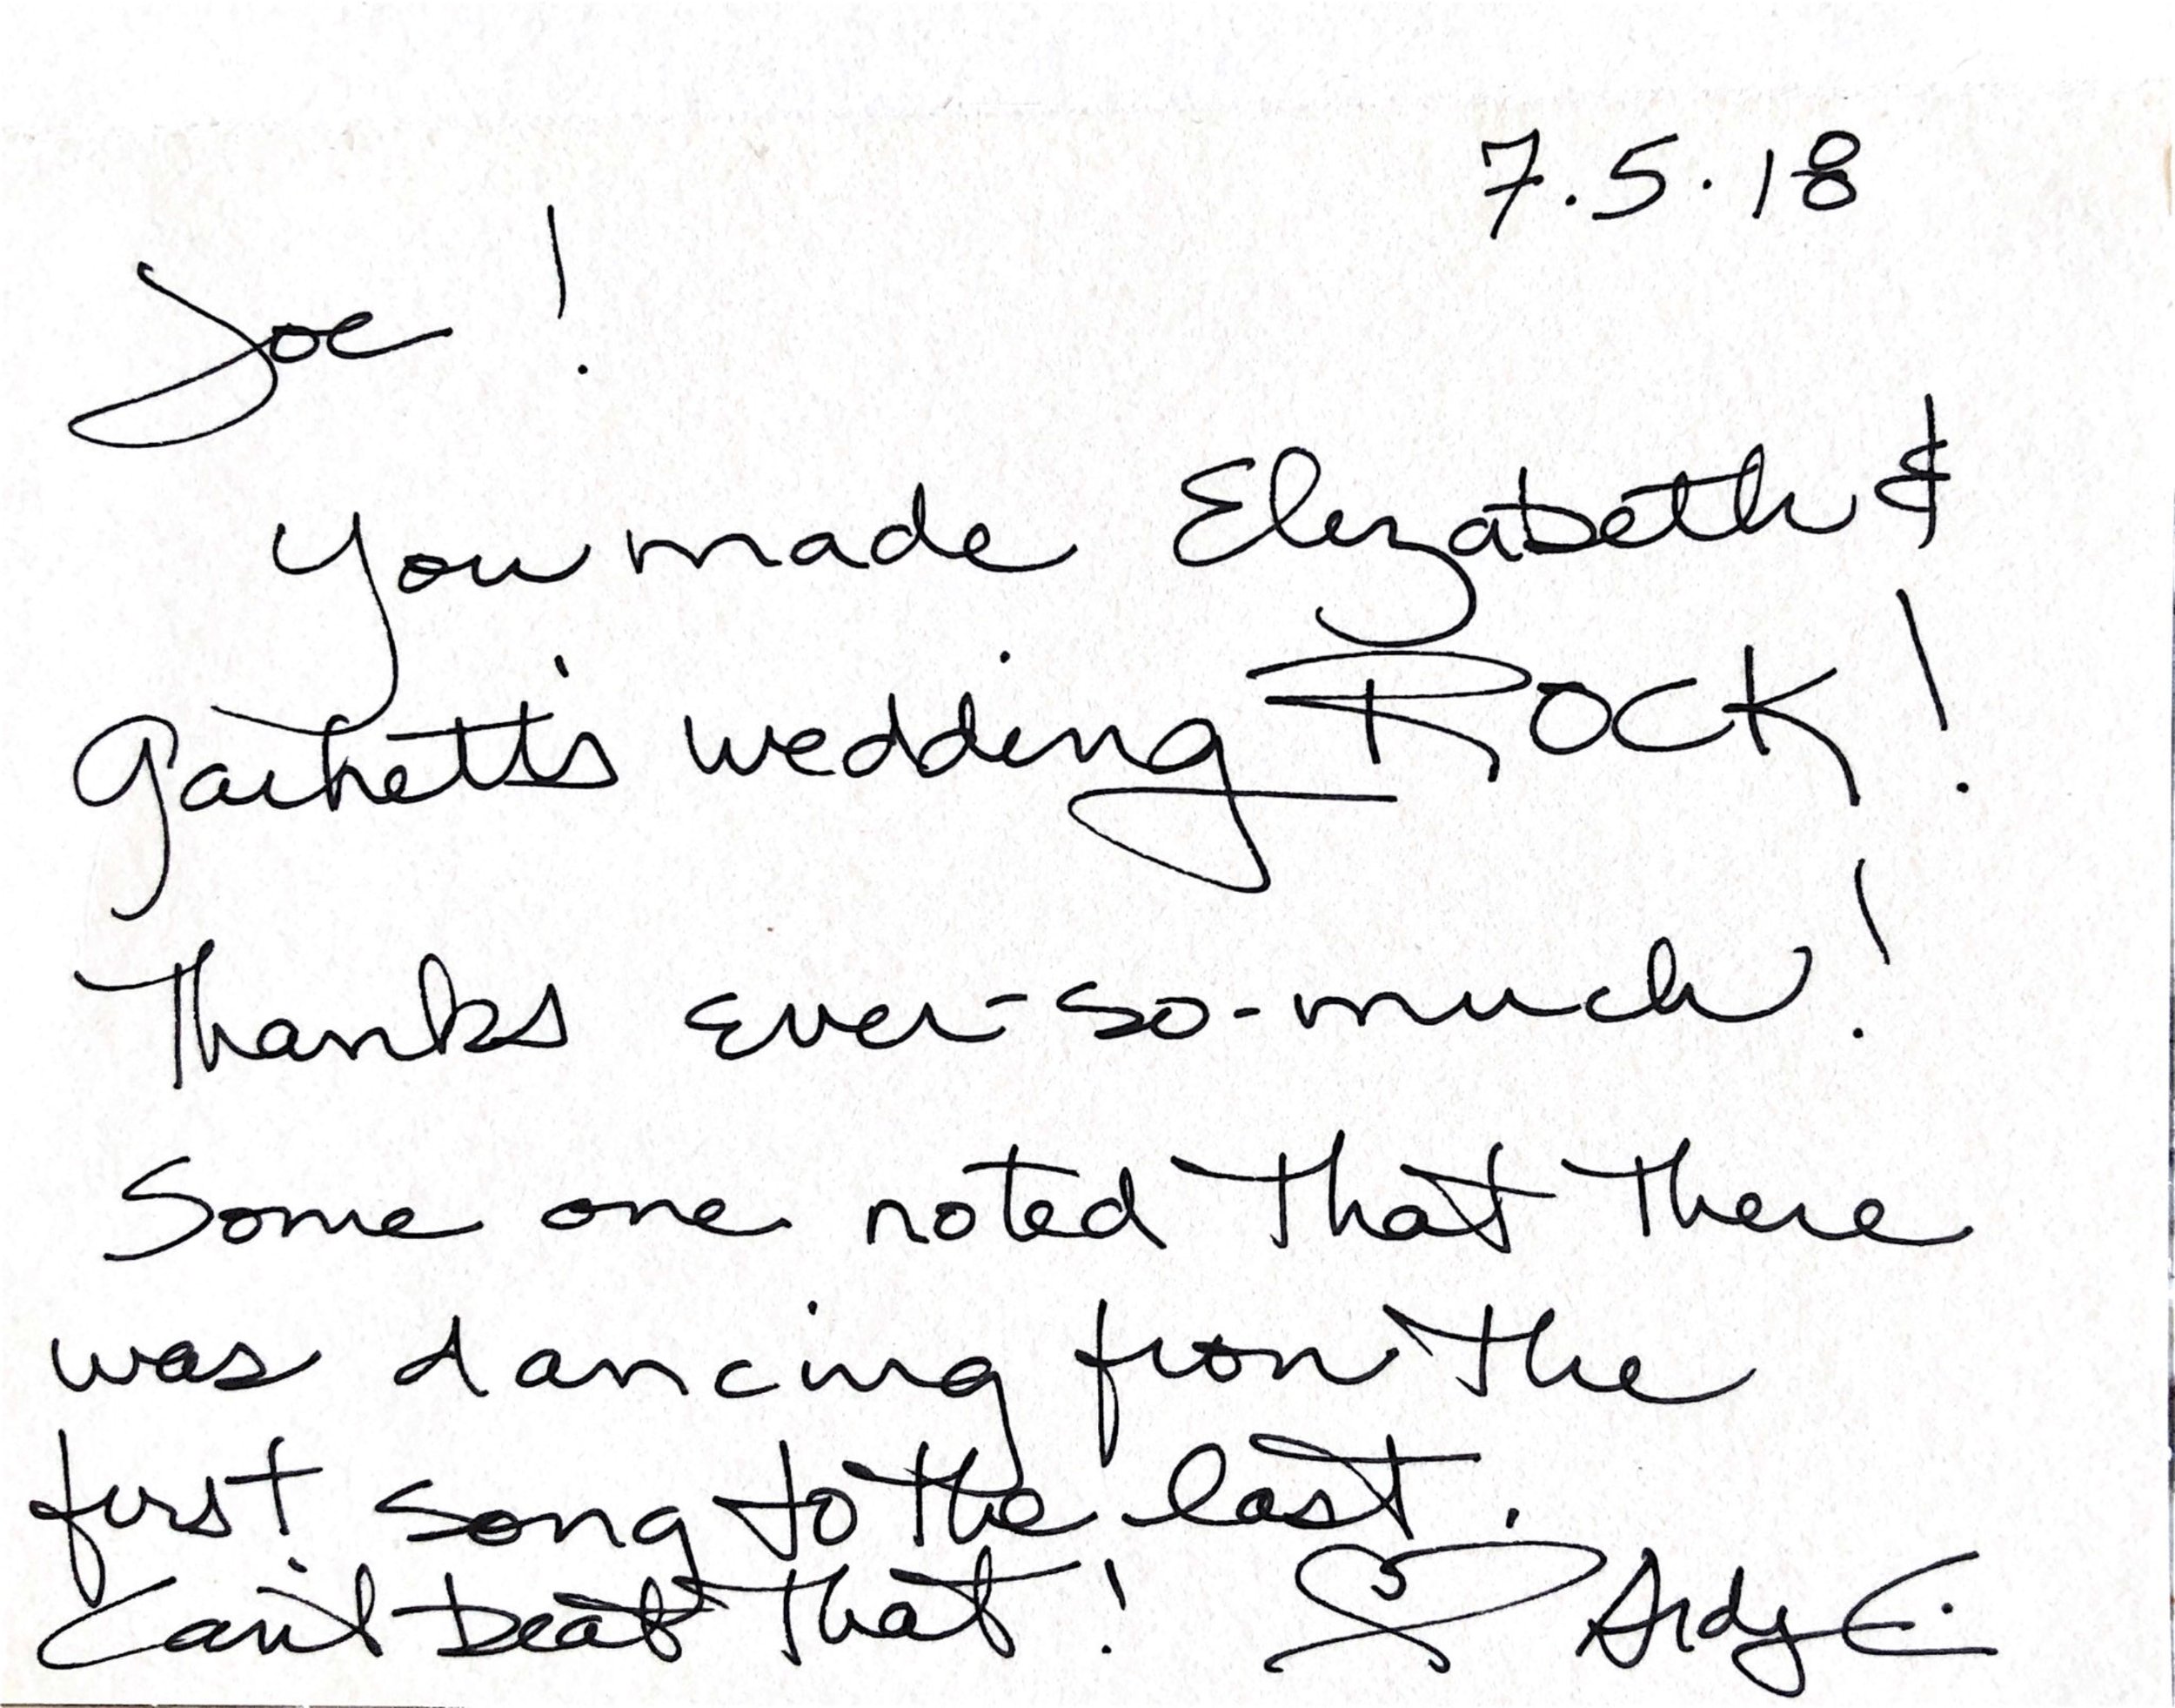 7.5.18
Joe!
You made Elizabeth &
Garhett's wedding ROCK!
Thanks ever-so-much!
Some one noted that there
was dancing from the
first song to the last.
Can't beat that! ♡ Ardy E.